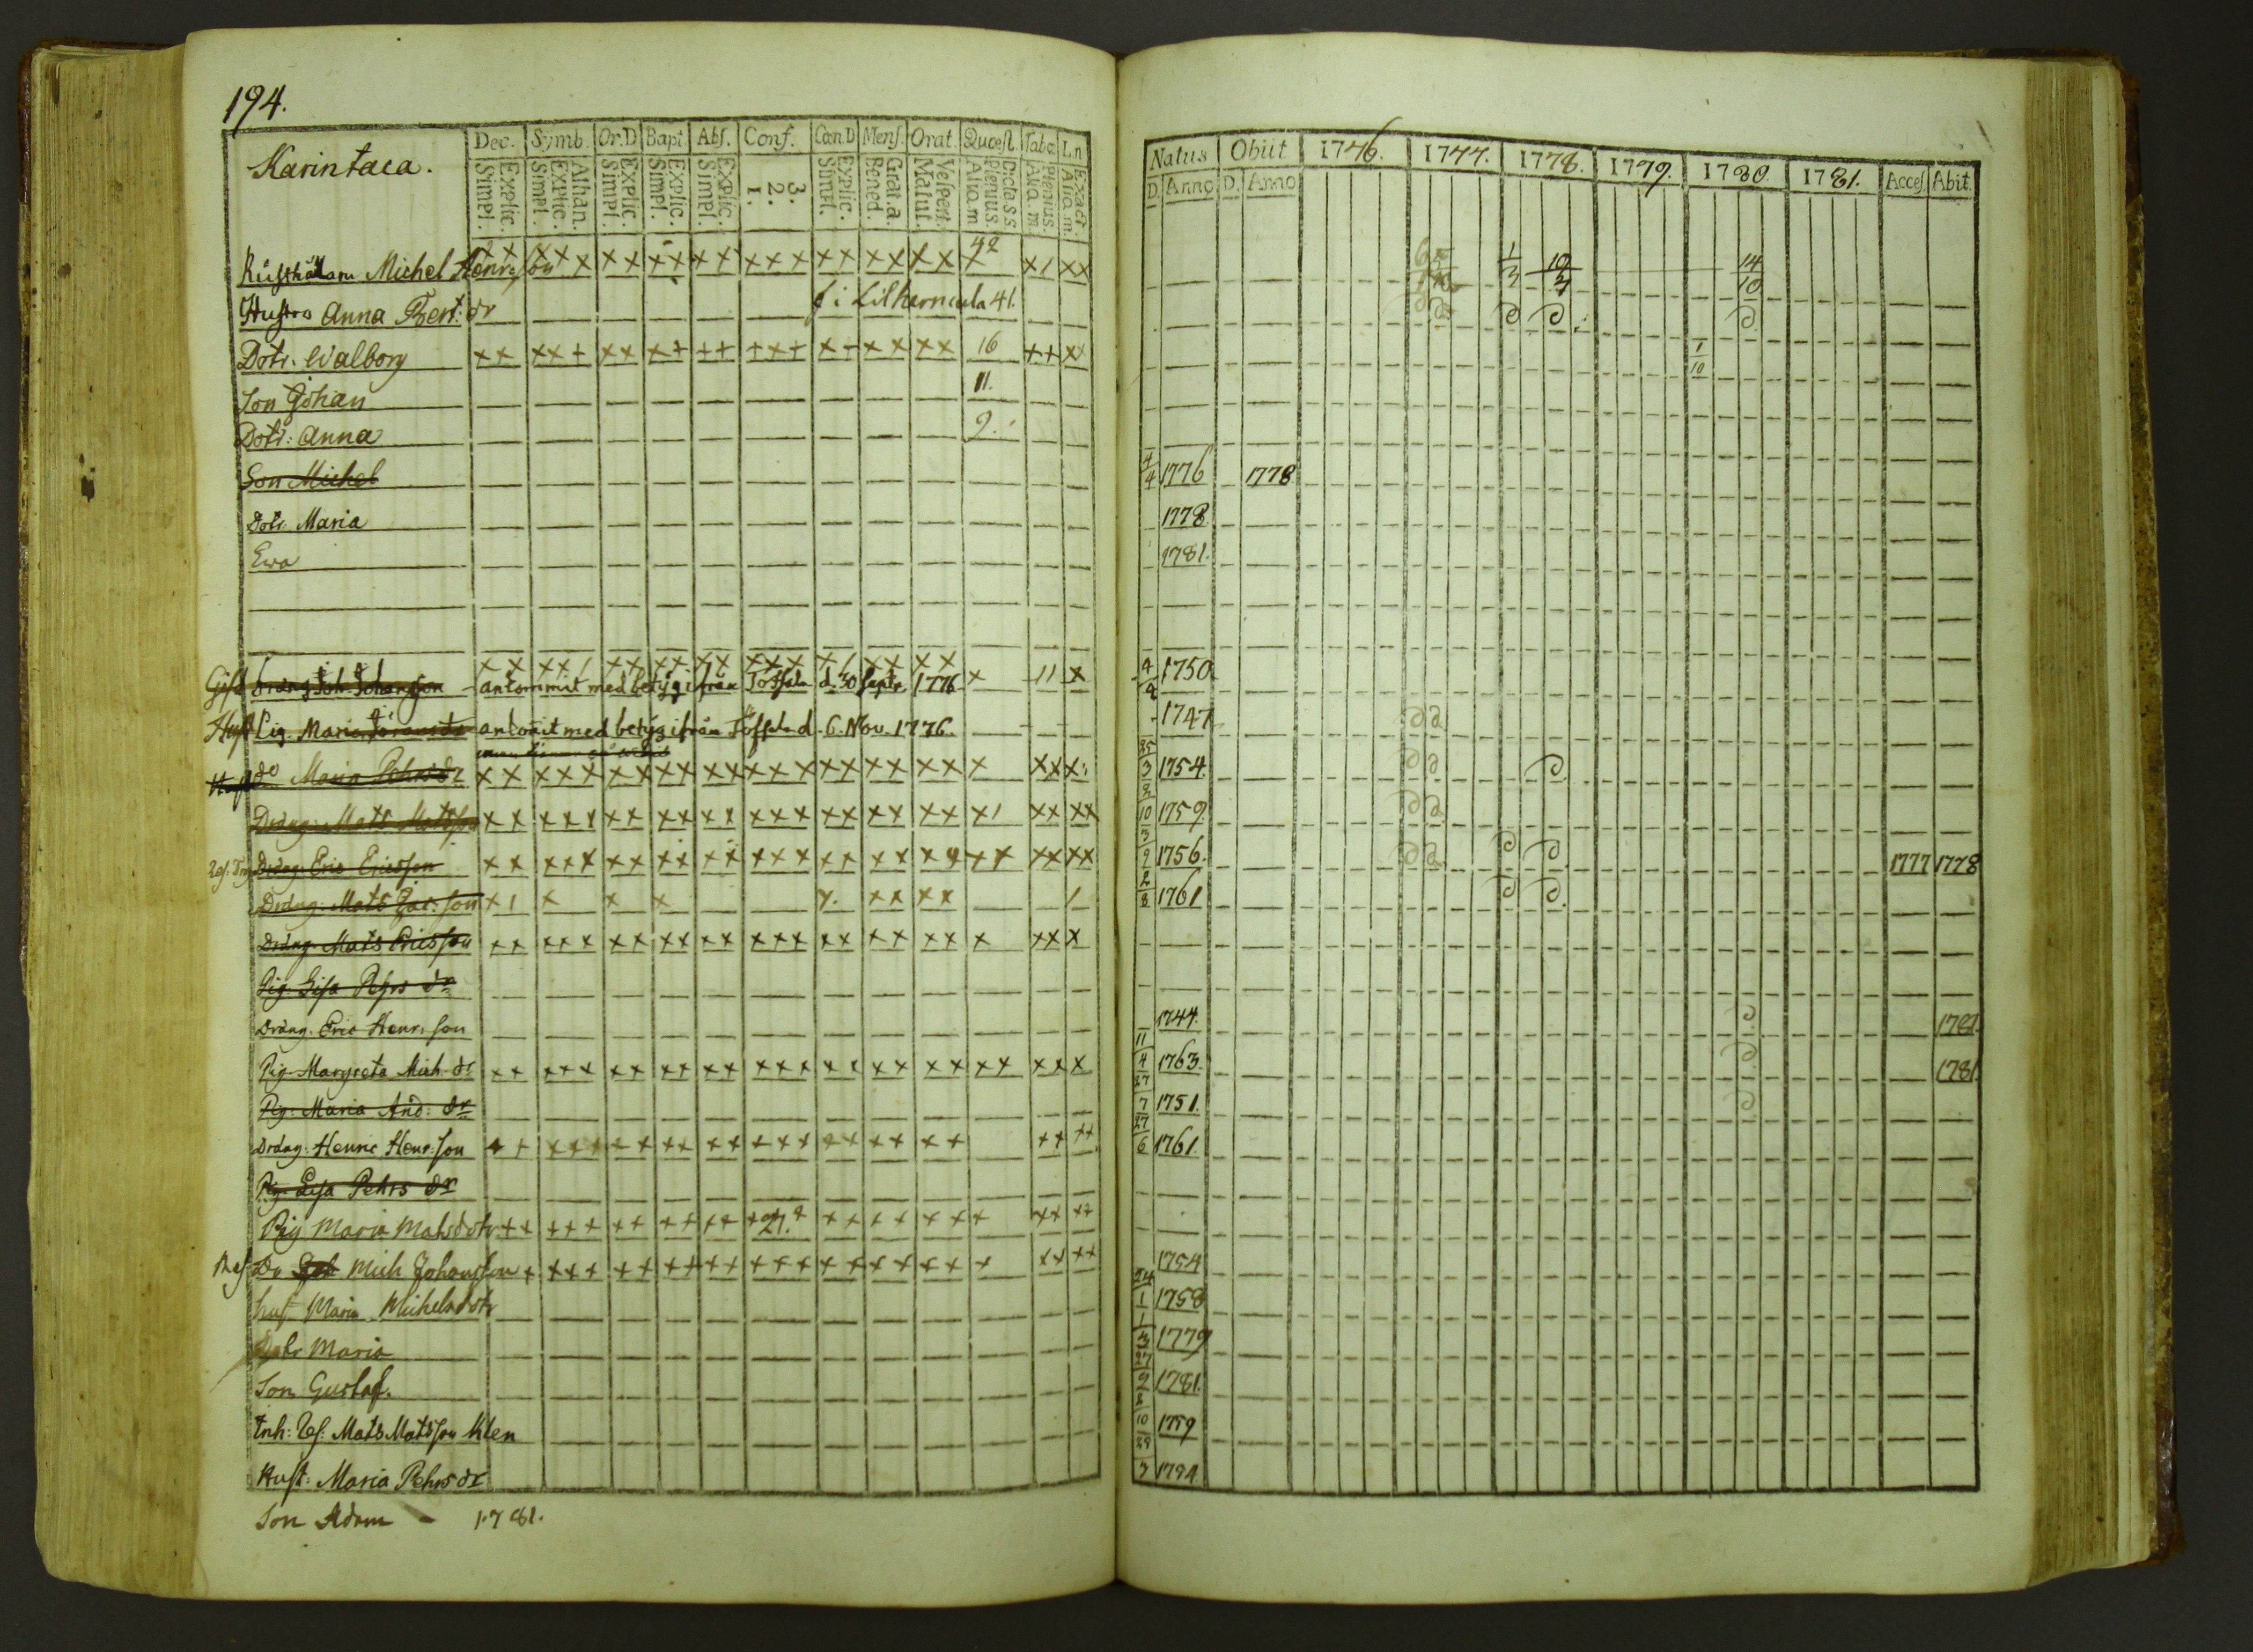 194.
Karintaca.
Dec. Symb. Or.D Bapt. Abs. Conf. Cœn.D Mens. Orat. Quæst. Tabæ. L.n
Explic. Simpl. Athan. Explic. Simpl. Explic. Simpl. Explic. Simpl. Explic. Simpl. 3. 2. 1. Explic. Simpl. Grat.a. Bened. Vespert. Matut. Plenius. Aliq.m Plenius. Aliq.m Exact. Aliq.m
Michel Henrsson x x x x x x x x x x x x x x x x x x x x x 42 x x 1 x x
Hustro Anna Bert: dr f i 41.
Dotr. Walborg x x x x + x x x + + + + x + x + x x x x 16 + + x x
Son Johan 11.
Dotr: Anna 9.
Son Michel
Dotr. Maria
Ewa
Gift Dräng Joh. Johansson x x x x 1 x x x x x x x x x x x x x x x x 11 x
ankommit med betyg ifrån d. 30 Septr. 1776
Hust Pig. Maria ankomit med betyg ifrån d. 6. Nov. 1776.
Hust do Maria Pehrs dr x x x x x x x x x x x x x x x x x x x x x x x x
Dräng: Mats Matsson x x x x x x x x x x x x x x x x x x x x x 1 x x x x
Dräng: Eric Ericsson x x x x x x x x x x x x x x x x x x x x x x x x x x
Dräng. Mats Jac: son x 1 x x x x x x x x 1
Dräng. Mats Ericsson x x x x x x x x x x x x x x x x x x x x x x x x
Pig. Lisa Pehrs dr
Dräng. Eric Henr: son
Pig. Margreta Mich. dr x x x x x x x x x x x x x x x x x x x x x x x x x
Pig. Maria And: dr
Dräng: Henric Henr: son + + x x x + x x x x x + x x x x x x x x + x + +
Pig. Lisa Pehrs dr
Pig Maria Matsdotr + + + + + + + + + + + 27. + + + + + + + + + + +
Dr Mich Johansson + + + + + + + + + + + + + + + + + + + + + + + +
hust Maria Michelsdotr
Dotr Maria
Son Gustaf.
Inh: Mats Matsson Klen
Hust: Maria Pehrs dr
Son Adam 1781.
Natus Obiit 1776. 1777. 1778. 1779. 1780. 1781. Acces. Abit.
D. Anno D. Anno
1/3 19/3 14/10
1/10
4/4 1776 1778
1778
1781.
1750
1747
25/3 1754.
2/10 1759
3/9 1756. 1777 1778
2/8 1761
1744. 1781.
11/4 1763. 1781.
27/7 1751.
27/6 1761.
1754
24/1 1758
1779
27/9 1781.
2/10 1759
1754